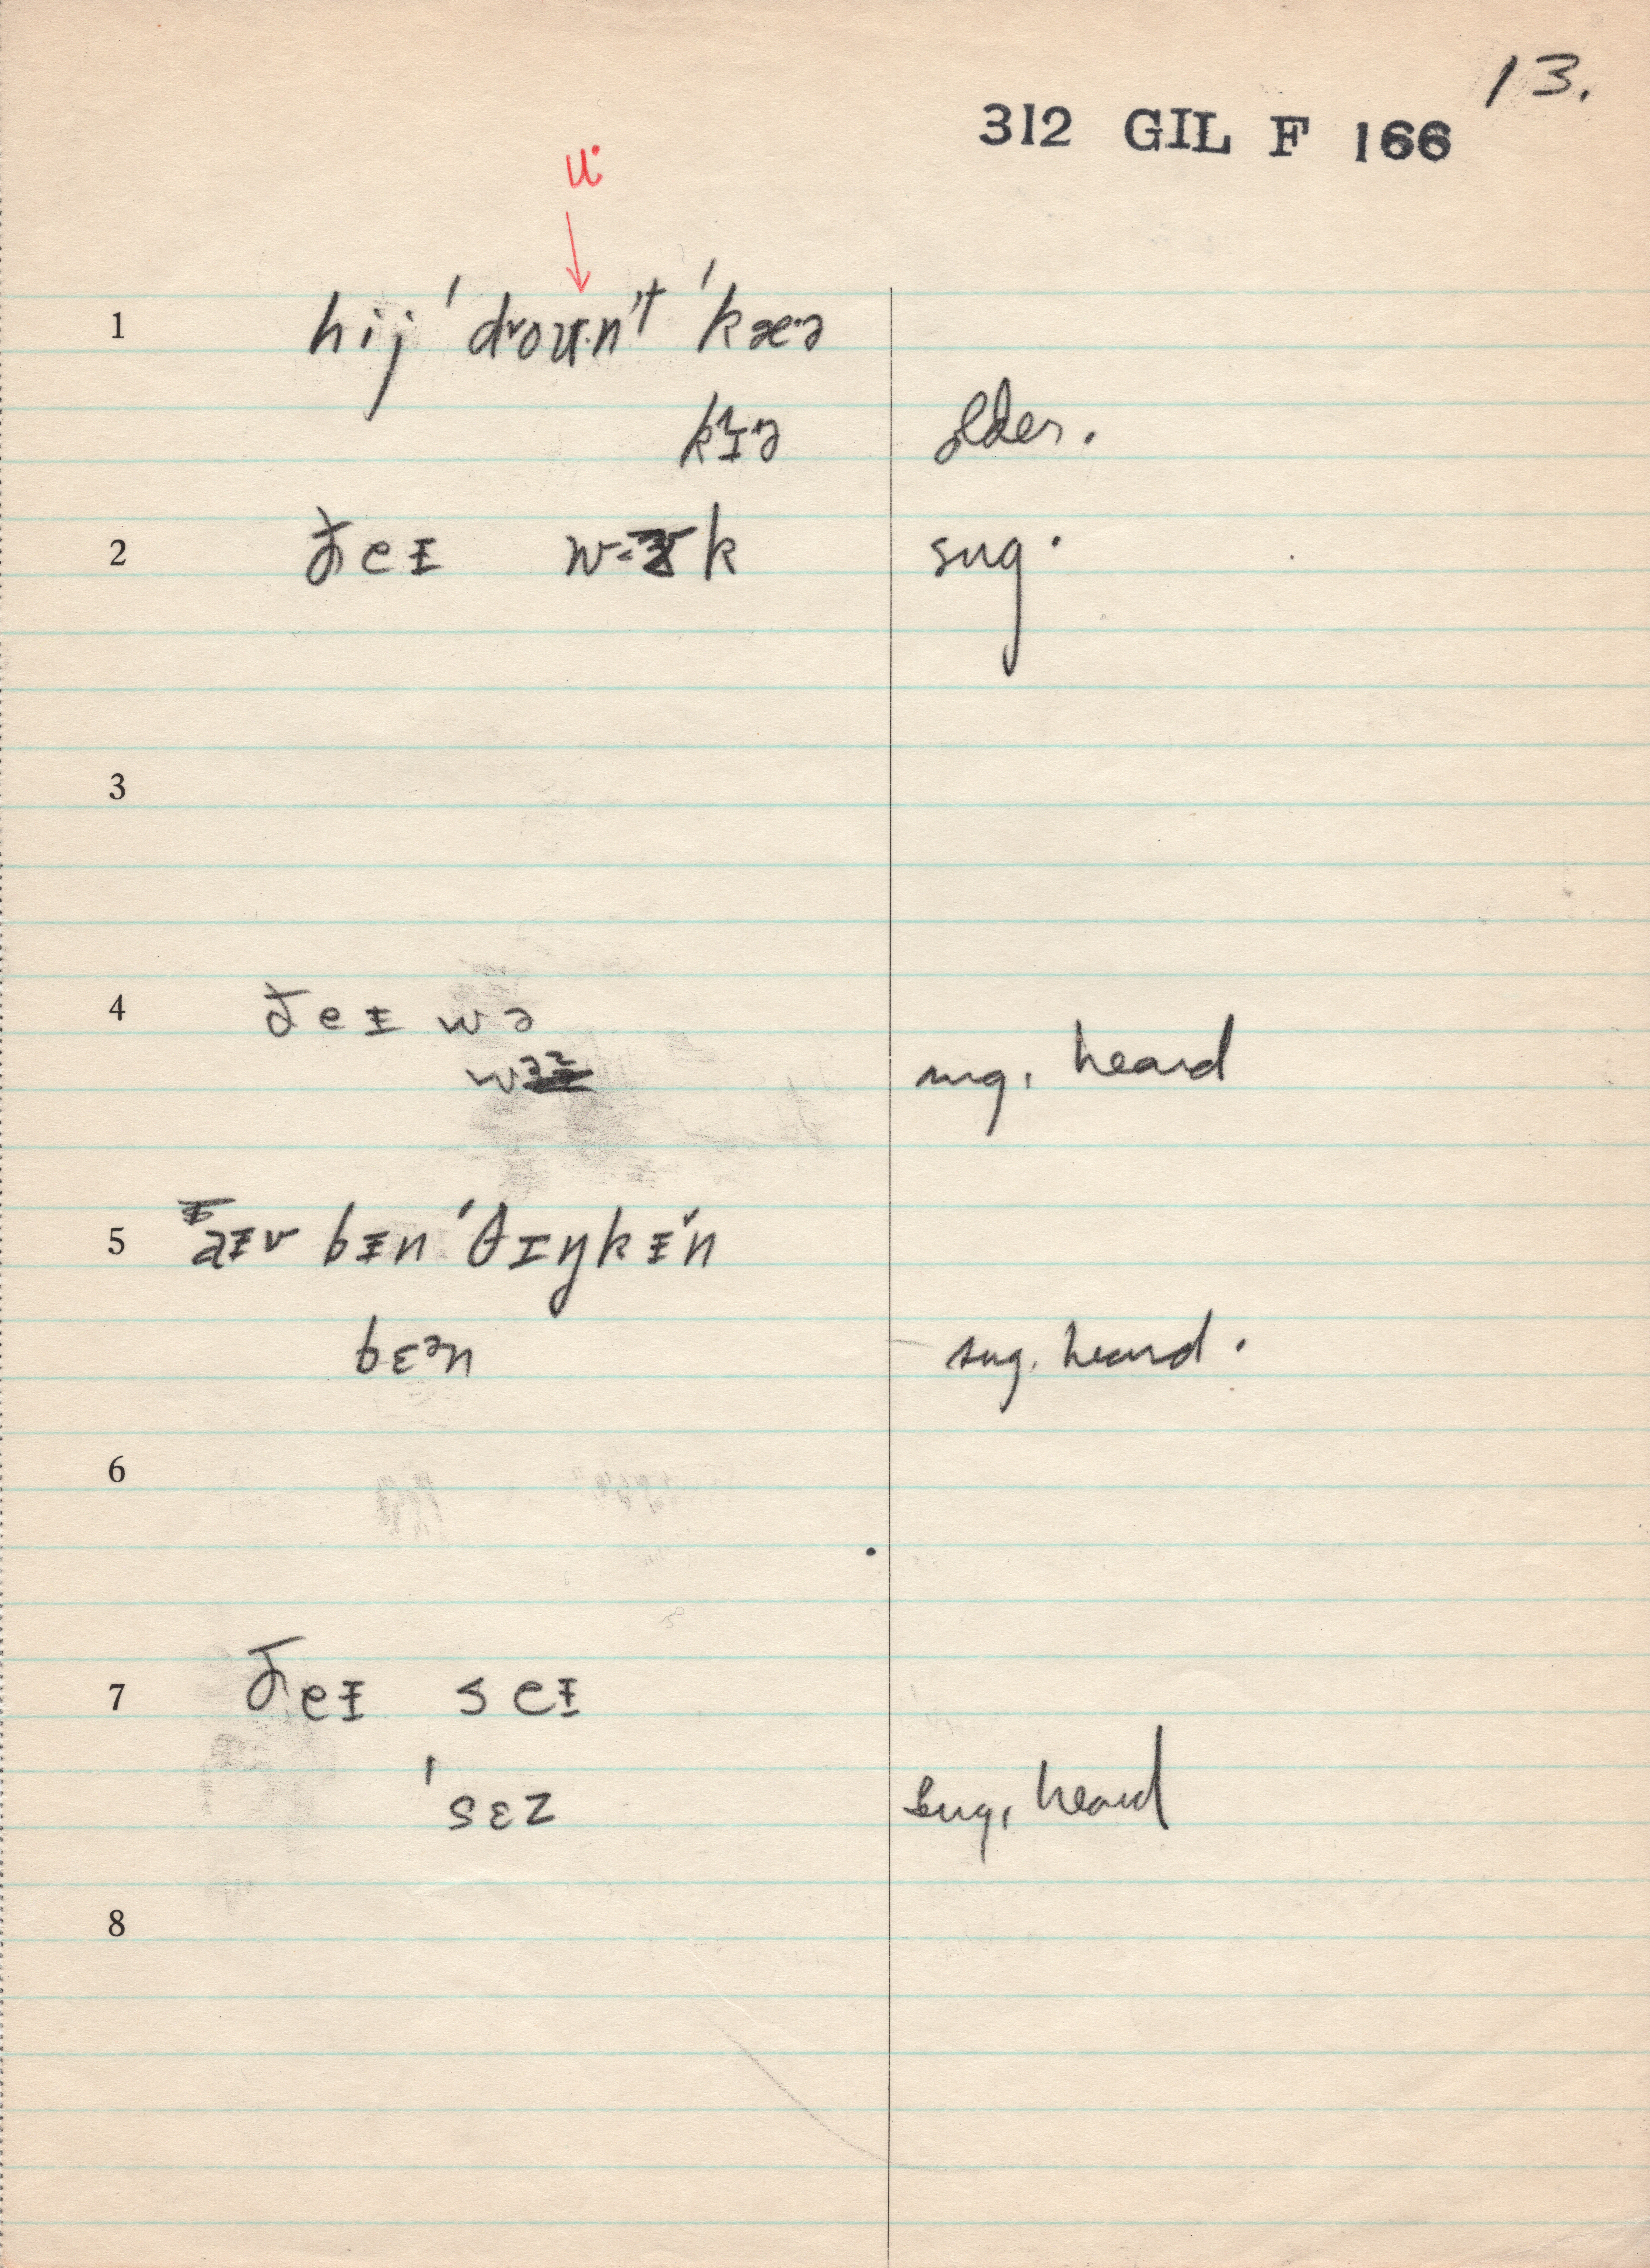 13.
312 GIL F 166
u·
1 hij ˈdroʉ·nˀt ˈkæ·ə
kɪ·ə older.
2 ðeᵻ w k sug.
3
4 ðeᵻ wə
sug. heard
5 aᵻv bᵻn ˈθɪŋkᵻn
bɛᵊn sug. heard.
6
7 ðeᵻ seᵻ
ˈsɛz sug. heard
8